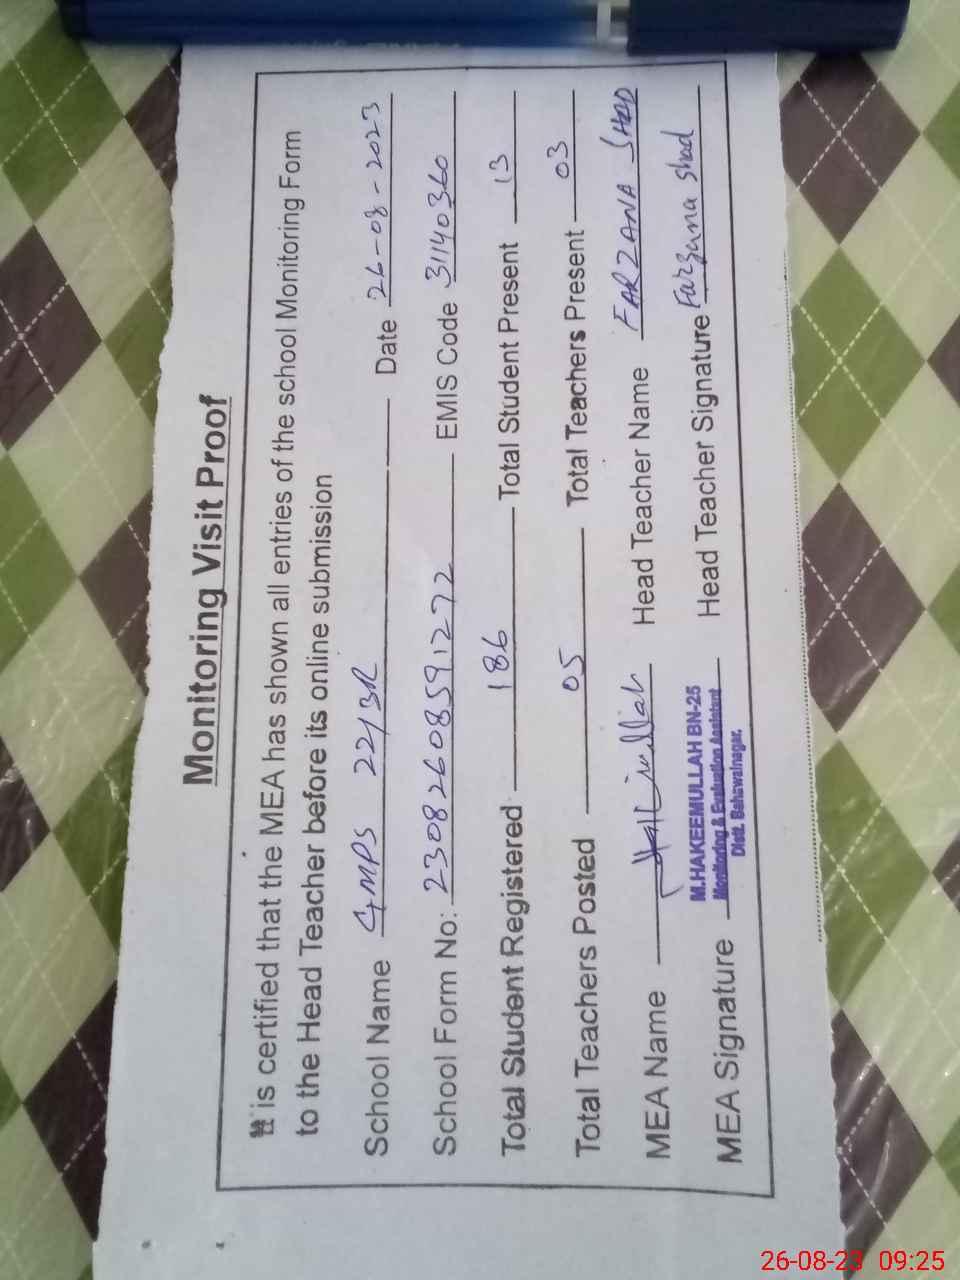 Monitoring Visit Proof
It is certified that the MEA has shown all entries of the school Monitoring Form
to the Head Teacher before its online submission
School Name GMPS 22/3R Date 26-08-2023
School Form No: 23082608591272 EMIS Code 31140360
Total Student Registered 186 Total Student Present 13
Total Teachers Posted 05 Total Teachers Present 03
MEA Name Head Teacher Name FARZANA SHAD
M.HAKEEMULLAH BN-25
Monitoring & Evaluation Assistant
Distt. Bahawalnagar.
MEA Signature Head Teacher Signature Farzana Shad
26-08-23 09:25